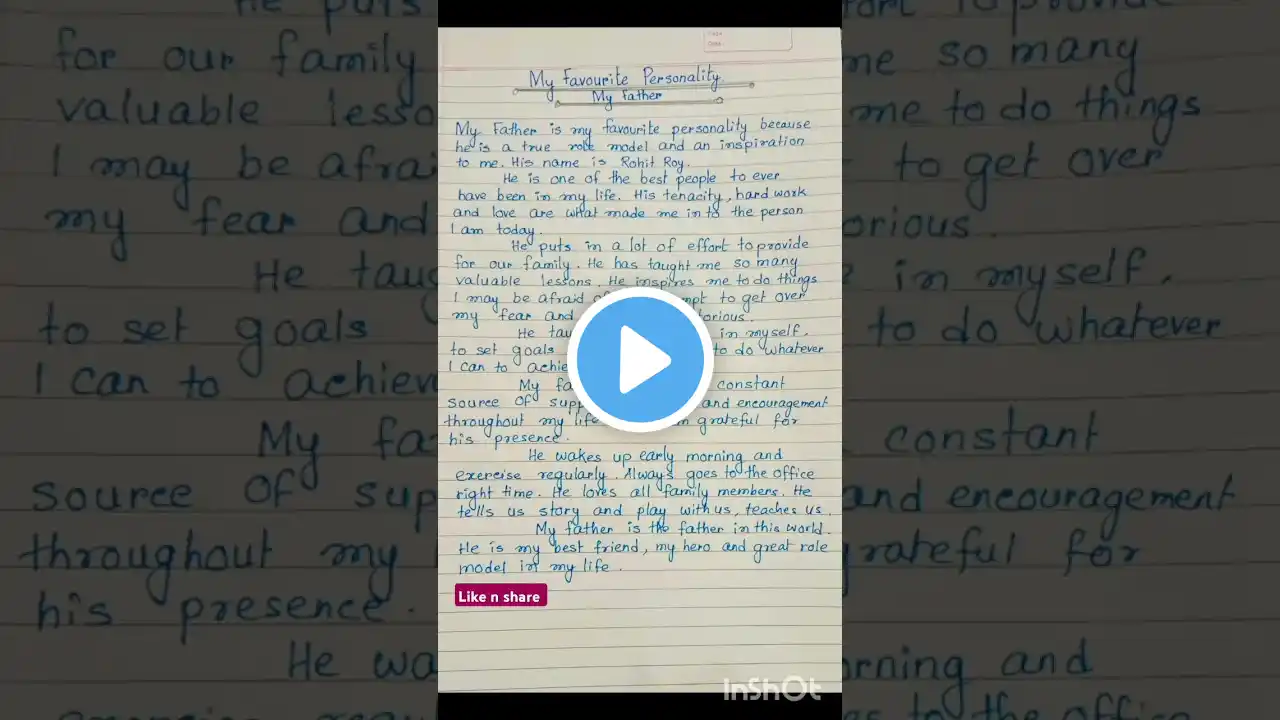 My Favourite Personality
My Father
My Father is my favourite personality because
he is a true role model and an inspiration
to me. His name is Rohit Roy.
He is one of the best people to ever
have been in my life. His tenacity, hard work
and love are what made me into the person
I am today.
He puts in a lot of effort to provide
for our family. He has taught me so many
valuable lessons. He inspires me to do things
I may be afraid to get over
my fear and
He in myself.
to set goals to do whatever
I can to
My constant
source of and encouragement
throughout my life grateful for
his presence.
He wakes up early morning and
exercise regularly. Always goes to the office
right time. He loves all family members. He
tells us story and play with us, teaches us.
My father is the father in this world.
He is my best friend, my hero and great role
model in my life.
Like n share
InShOt